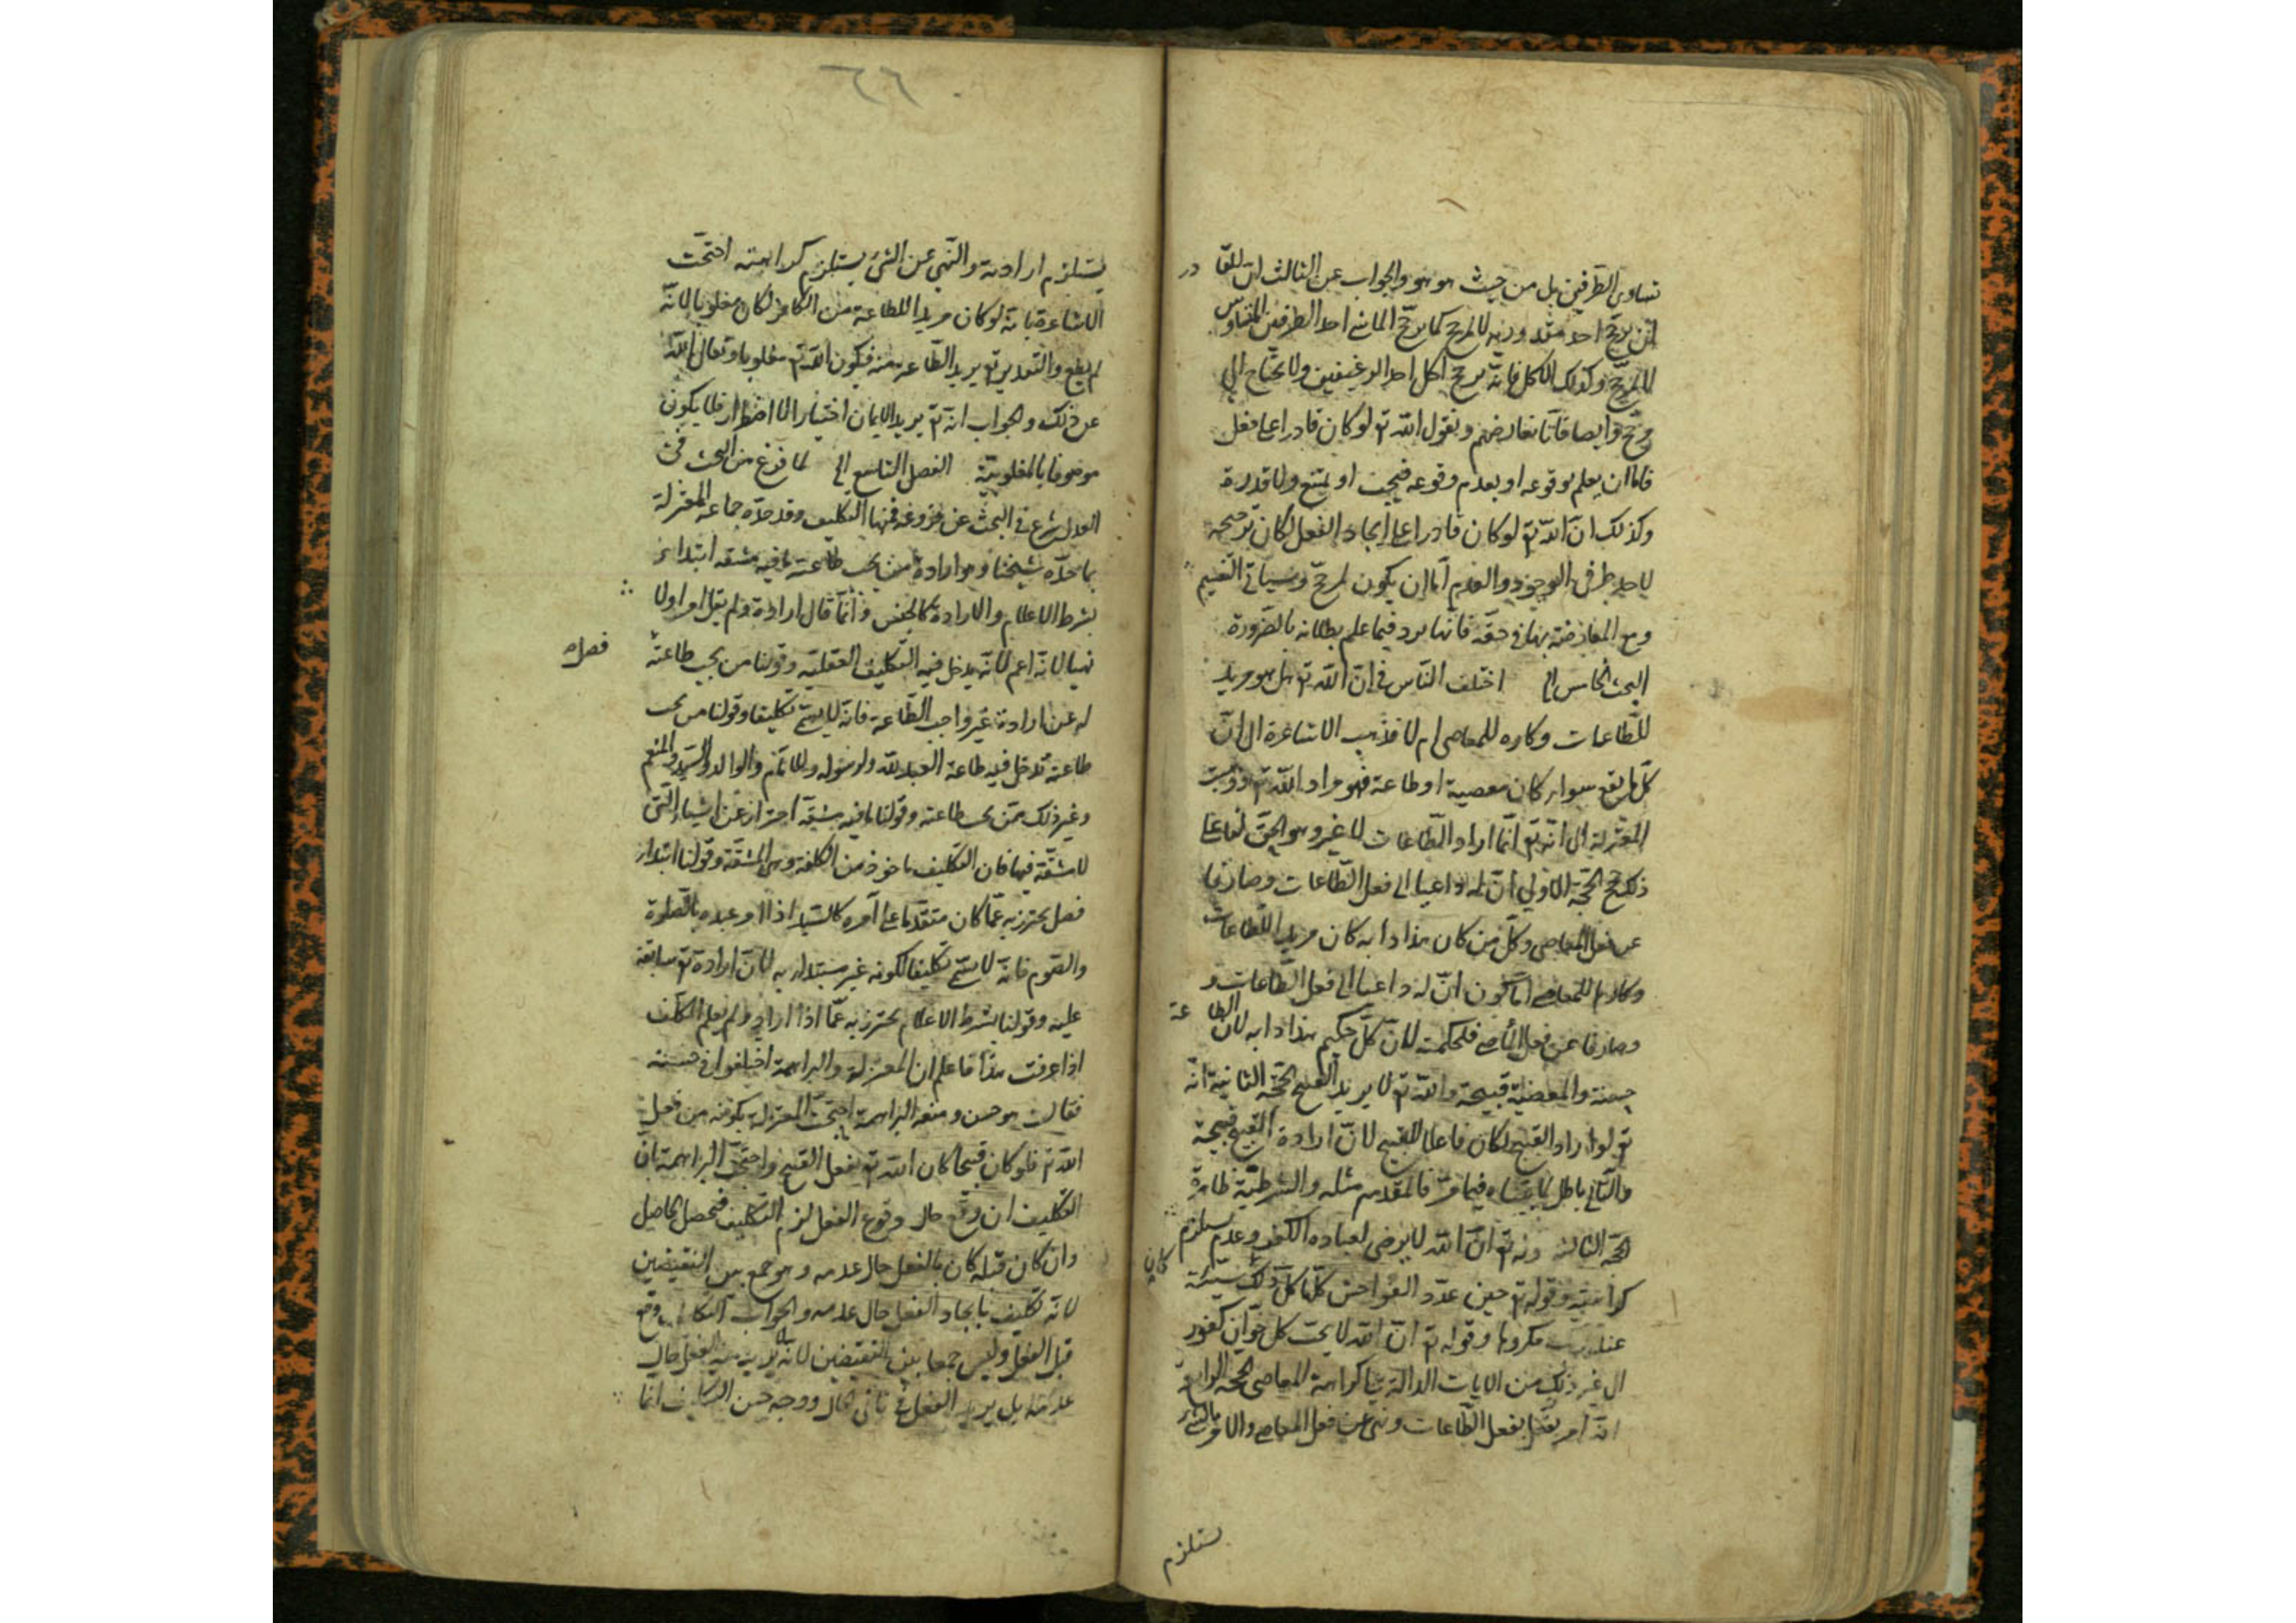 تساوى الطرفين بل من حيث هو هو والجواب عن الثالث ان للقا در
ان يرجح احد مقدوريه لا لمرجح كما يرجح الماشى احد الطرفين المتساويين
لا لمرجح وكذلك الاكل فانه يرجح اكل احد الرغيفين ولا يحتاج الى
مرجح وايضا فانا نعارضهم ونقول الله تع لو كان قادرا على فعل
فاما ان يعلم بوقوعه او بعدم وقوعه فيجب او يمتنع ولا قدرة
وكذلك ان الله تع لو كان قادرا على ايجاد الفعل لكان ترجيحه
لاحد طرفى الوجود والعدم اما ان يكون لمرجح وسياتى التقسيم
ومع المعارضة بهما فى حقه فانها يرد فيما علم بطلانه بالضرورة
البحث الخامس الخ اختلف الناس فى ان الله تع هل هو مريد
للطاعات وكاره للمعاصى ام لا فذهب الاشاعرة الى ان
كل ما يقع سواء كان معصية او طاعة فهو مراد الله تع وذهبت
المعتزلة الى انه تع انما اراد الطاعات لا غير وهو الحق لنا على
ذلك حجج الحجة الاولى ان له داعيا الى فعل الطاعات وصارفا
عن فعل المعاصى وكل من كان هذا دابه كان مريد اللطاعات
وكارها للمعاصى اما كون ان له داعيا الى فعل الطاعات و
وصارفا عن فعل المعاصى فلحكمته لان كل حكيم هذا دابه لان الطا عة
حسنة والمعصية قبيحة والله تع لا يريد القبيح الحجة الثانية انه
تع لو اراد القبيح لكان فاعلا للقبيح لان ارادة القبيح قبيحة
والتالى باطل لما بيناه فيما مر فالمقدم مثله والشرطية ظاهرة
الحجة الثالثة قوله تع ان الله لا يرضى لعباده الكفر وعدم يستلزم
كراهيته وقوله تع حين عدد الفواحش كلها كل ذلك كان سيئة
عند ربك مكروها وقوله تع ان الله لا يحب كل خوان كفور
الى غير ذلك من الايات الدالة على كراهة المعاصى الحجة الرابعة
انه امر بفعل الطاعات ونهى عن فعل المعاصى والامر بالشئ
ستلزم
٦٦
يستلزم ارادته والنهى عن الشئ يستلزم كراهته احتجت
الاشاعرة بانه لو كان مريد اللطاعة من الكافر لكان مغلوبا لانه
لم يطع والتقدير تع يريد الطاعة منه فيكون الله تع مغلوبا وتعالى الله
عن ذلك والجواب انه تع يريد الايمان اختيارا لا اضطرارا فلا يكون
موصوفا بالمغلوبية الفصل التاسع الخ لما فرغ من البحث فى
العدل شرع فى البحث عن فروعه فمنها التكليف وقد حده جماعة المعتزلة
بما حده شيخنا وهو ارادة من يجب طاعته ما فيه مشقة ابتداء
بشرط الاعلام والارادة كالجنس وانما قال ارادة ولم يقل امرا ولا
نهيا لانه اعم لانه يدخل فيه التكليف العقلية وقولنا من يجب طاعته فصل
له عن ارادة غير واجب الطاعة فانه لا يسمى تكليفا وقولنا من يجب
طاعته تدخل فيه طاعة العبد لله ولرسوله وللامام والوالد والسيد والمنعم
وغير ذلك ممن يجب طاعته وقولنا ما فيه مشقة احتراز عن اشياء التى
لا مشقة فيها فان التكليف ماخوذ من الكلفة وهى المشقة وقولنا ابتداء
فصل يحترز به عما كان متقدما على امره كالسيد اذا امر عبده بالصلوة
والصوم فانه لا يسمى تكليفا لكونه غير مبتداء به لان ارادة تع سابقة
عليه وقولنا بشرط الاعلام يحترز به عما اذا اراد ولم يعلم المكلف
اذا عرفت هذا فاعلم ان المعتزلة والبراهمة اختلفوا فى حسنه
فقالت هو حسن ومنعه البراهمة احتجت المعتزلة بكونه من فعل
الله تع فلو كان قبيحا كان الله تع يفعل القبيح واحتجت البراهمة بان
التكليف ان وقع حال وقوع الفعل لزم التكليف بتحصيل الحاصل
وان كان قبله كان بالفعل حال عدمه وهو جمع بين النقيضين
لانه تكليف بايجاد الفعل حال عدمه والجواب التكليف وقع
قبل الفعل وليس جمعا بين النقيضين لانه لا يريد منه الفعل حال
عدمه بل يريد الفعل فى ثانى الحال ووجه حسن التكليف انما